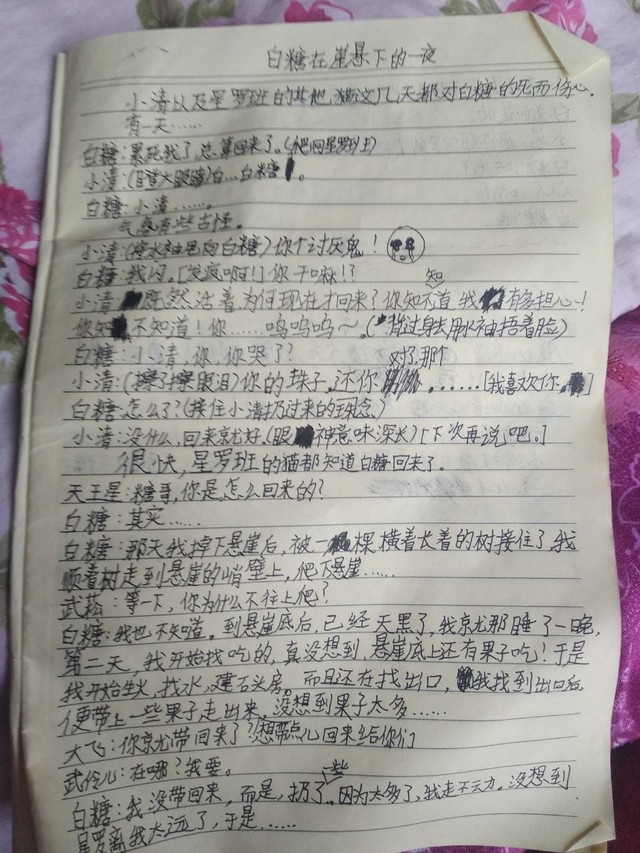 白糖在崖悬下的一夜
小清以及星罗班的其他猫这几天都对白糖的死而伤心.
有一天……
白糖:累死我了,总算回来了。(爬回星罗班)
小清:(瞪大眼睛)白…白糖。
白糖:小清……。
气氛有些古怪。
小清:(摔水袖甩向白糖)你个讨厌鬼!
白糖:我闪。[发疯啊!]你干嘛!?
小清 既然活着为何现在才回来了你知不道我有多担心!
知
你知不知道!你……呜呜呜~。(背过身去用水袖捂着脸)
白糖:小清,你,你哭了?
对了,那个
小清:(擦了擦眼泪)你的珠子,还你。……[我喜欢你。]
白糖:怎么了?(接住小清扔过来的现念)
小清:没什么,回来就好。(眼神意味深长)[下次再说吧。]
很快,星罗班的猫都知道白糖回来了。
天王星:糖哥,你是怎么回来的?
白糖:其实……
白糖:那天我掉下悬崖后,被一棵横着长着的树接住了,我
顺着树走到悬崖的峭壁上,爬下悬崖……
武菘:等一下,你为什么不往上爬?
白糖:我也不知道。到悬崖底后,已经天黑了,我就那睡了一晚,
第二天,我开始找吃的,真没想到,悬崖底上还有果子吃!于是
我开始生火,找水,建石头房。而且还在找出口,我找到出口后,
便带上一些果子走出来,没想到果子太多……
大飞:你就带回来了?想带点儿回来给你们
武伶儿:在哪?我要。
一些
白糖:我没带回来,而是,扔了,因为太多了,我走不云力。没想到
星罗离我太远了,于是……